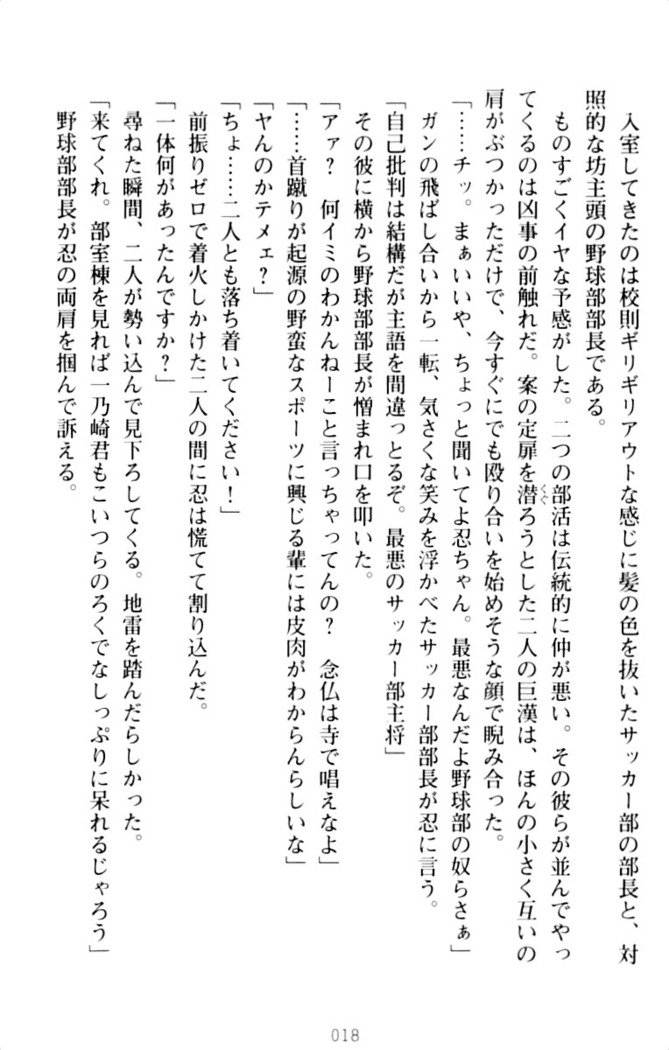 入室してきたのは校則ギリギリアウトな感じに髪の色を抜いたサッカー部の部長と、対
照的な坊主頭の野球部部長である。
ものすごくイヤな予感がした。二つの部活は伝統的に仲が悪い。その彼らが並んでやっ
てくるのは凶事の前触れだ。案の定扉を潜ろうとした二人の巨漢は、ほんの小さく互いの
くぐ
肩がぶつかっただけで、今すぐにでも殴り合いを始めそうな顔で睨み合った。
「……チッ。まぁいいや、ちょっと聞いてよ忍ちゃん。最悪なんだよ野球部の奴らさぁ」
ガンの飛ばし合いから一転、気さくな笑みを浮かべたサッカー部部長が忍に言う。
「自己批判は結構だが主語を間違っとるぞ。最悪のサッカー部主将」
その彼に横から野球部部長が憎まれ口を叩いた。
「アァ？　何イミのわかんねーこと言っちゃってんの？　念仏は寺で唱えなよ」
「……首蹴りが起源の野蛮なスポーツに興じる輩には皮肉がわからんらしいな」
「ヤんのかテメェ？」
「ちょ……二人とも落ち着いてください！」
前振りゼロで着火しかけた二人の間に忍は慌てて割り込んだ。
「一体何があったんですか？」
尋ねた瞬間、二人が勢い込んで見下ろしてくる。地雷を踏んだらしかった。
「来てくれ。部室棟を見れば一乃崎君もこいつらのろくでなしっぷりに呆れるじゃろう」
野球部部長が忍の両肩を掴んで訴える。
018